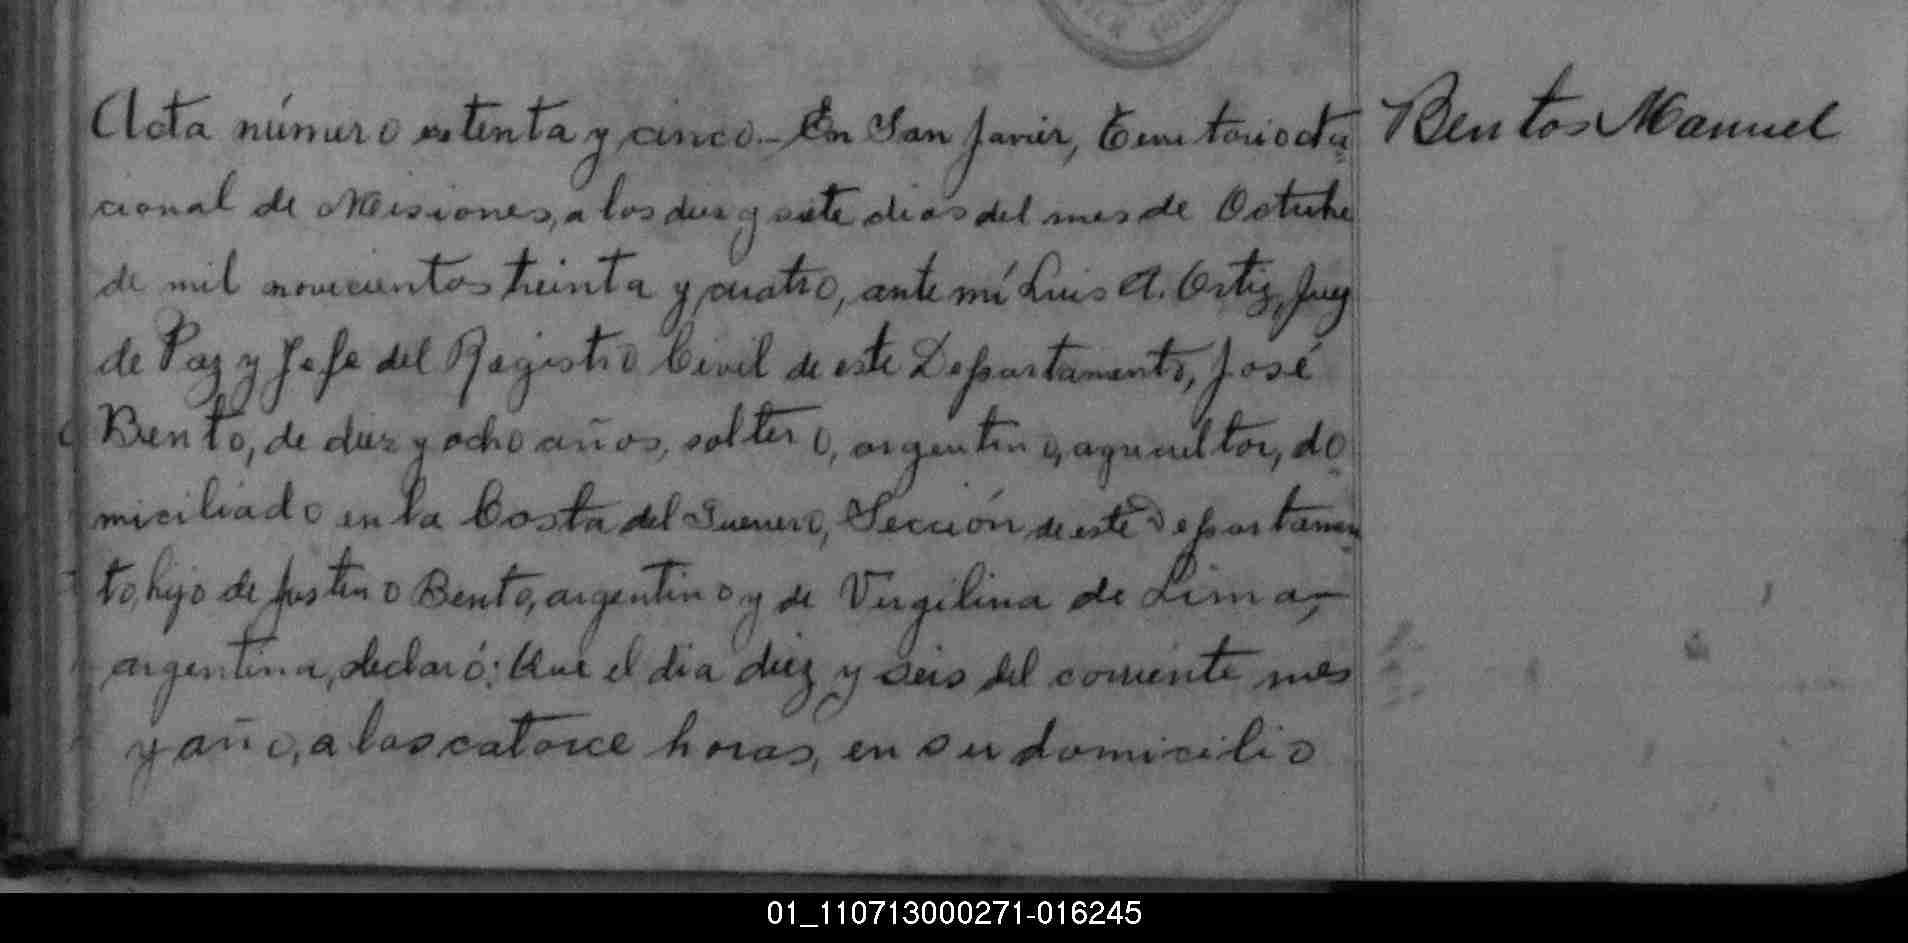 Acta número setenta y cinco.- En San Javier, Territorio Na=
cional de Misiones, a los diez y siete dias del mes de Octubre
de mil novecientos treinta y cuatro, ante mí Luis A. Ortiz, Juez
de Paz y Jefe del Registro Civil de este Departamento, José
Bento, de diez y ocho años, soltero, argentino, agricultor, do=
miciliado en la Costa del Sección de este Departamen=
to, hijo de Justino Bento, argentino y de Virgilina de Lima,-
argentina, declaró: Que el dia diez y seis del corriente mes
y año, a las catorce horas, en su domicilio
Bentos Manuel
01_110713000271-016245